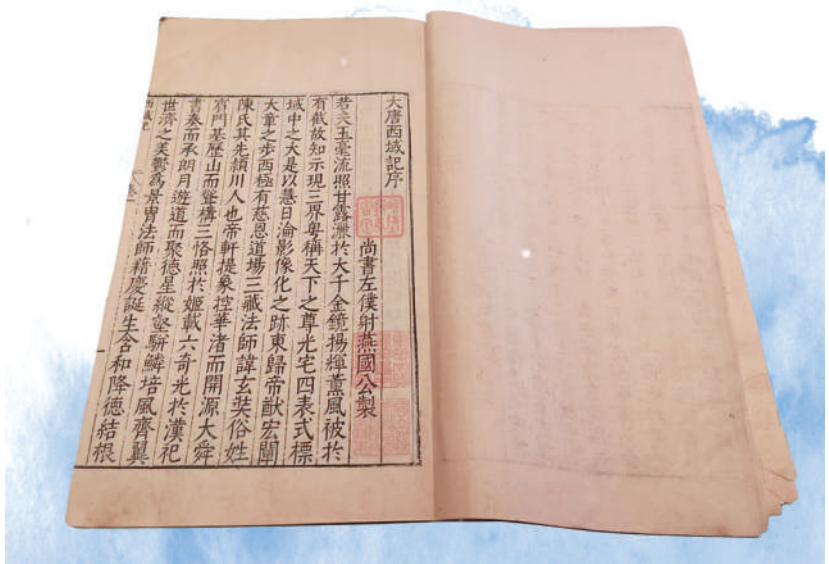 大唐西域記序
尚書左僕射燕國公製
若夫玉毫流照甘露灑於大千金鏡揚輝薰風被於
有截故知示現三界粤稱天下之尊光宅四表式標
域中之大是以慧日淪影像化之跡東歸帝猷宏闡
大章之步西極有慈恩道場三藏法師諱玄奘俗姓
陳氏其先頴川人也帝軒提象控華渚而開源大舜
賓門基歷山而聳構三恪照於姬載六奇光於漢祀
書奏而承朗月遊道而聚德星縱壑駢鱗培風齊翼
世濟之美鬱為景胄法師籍慶誕生含和降德結根